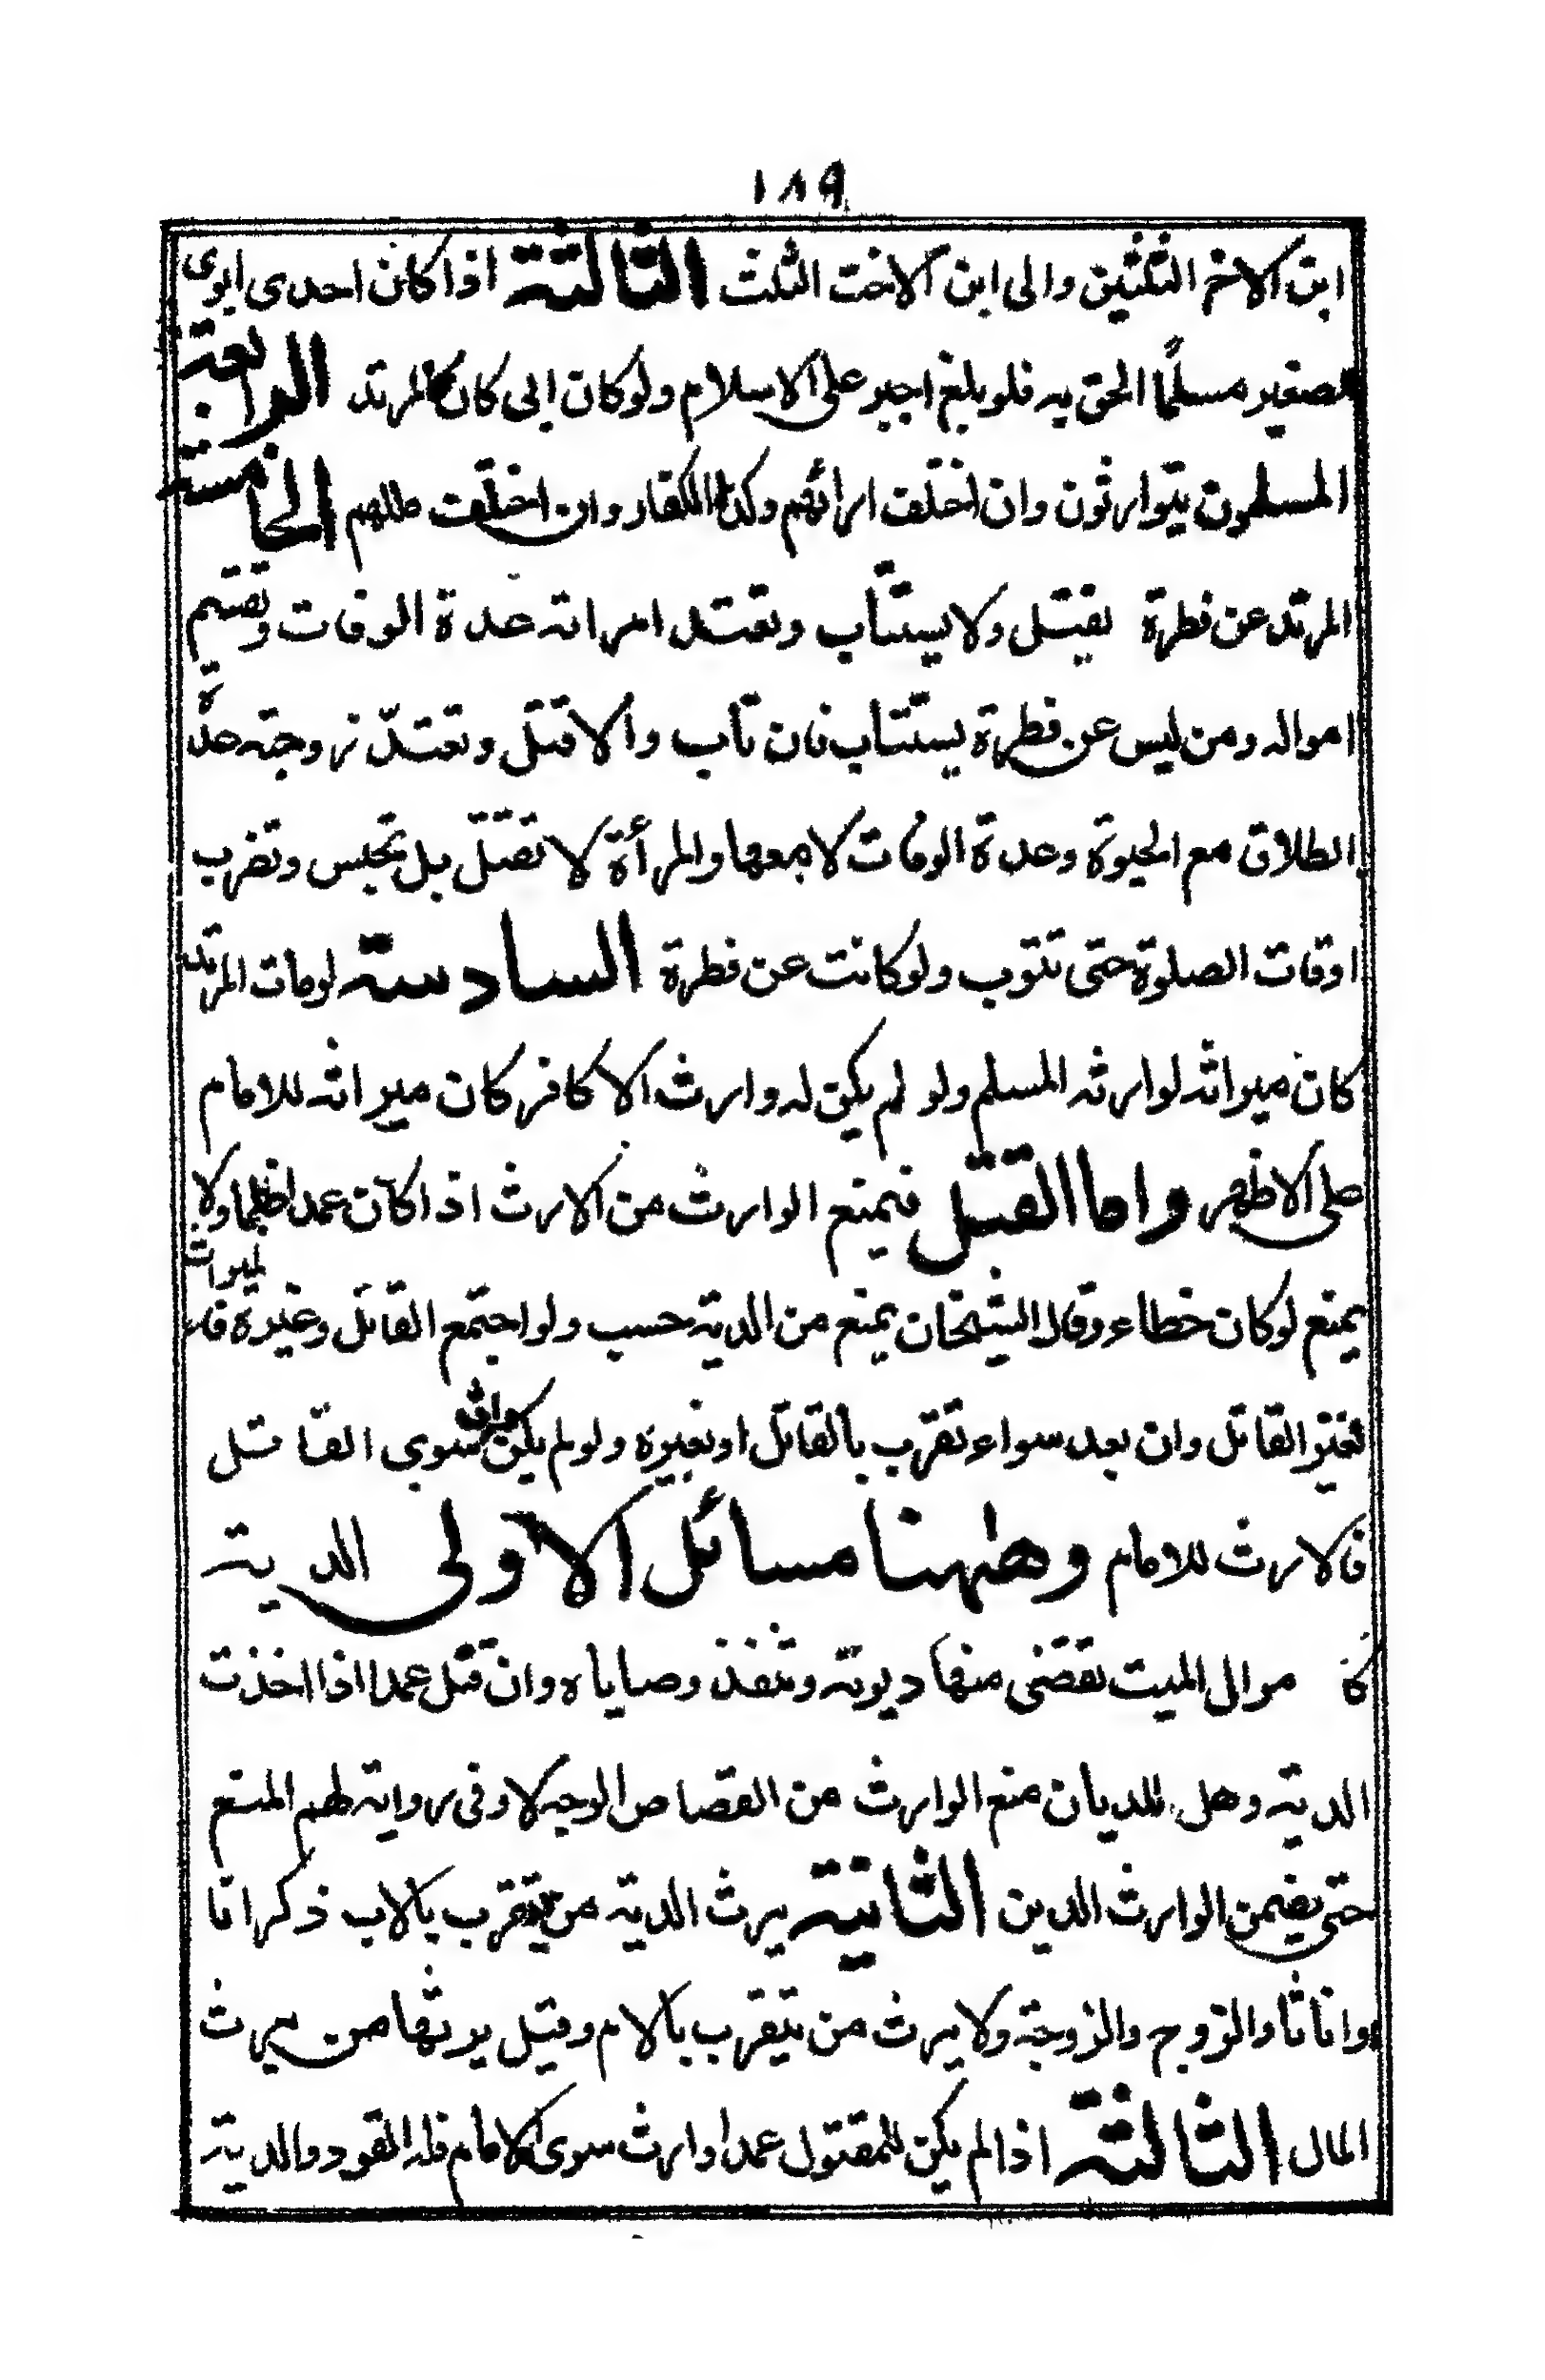 ١٨٩
ابن الاخ الثلثين والى ابن الاخت الثلث الثالثة اذا كان احدى ابوى
الصغير مسلمًا الحق به فلو بلغ اجبر على الاسلام ولو كان ابى كان كالمرتد الرابعة
المسلمون يتوارثون وان اختلف ارائهم وكذا الكفار وان اختلفت مللهم الخامسة
المرتد عن فطرة يقتل ولا يستتاب وتعتد امراته عدة الوفات وتقسم
امواله ومن ليس عن فطرة يستتاب فان تاب والا قتل وتعتدّ زوجته عدة
الطلاق مع الحيوة وعدة الوفات لا معها والمرأة لا تقتل بل تحبس وتضرب
اوقات الصلوة حتى تتوب ولو كانت عن فطرة السادسة لومات المرتد
كان ميراثه لوارثه المسلم ولو لم يكن له وارث الا كافر كان ميراثه للامام
على الاظهر واما القتل فيمنع الوارث من الارث اذا كان عمدا ظلما ولا
يمنع لو كان خطاء وقال الشيخان يمنع من الدية حسب ولو اجتمع القاتل وغيره فالميراث
لغير القاتل وان بعد سواء تقرب بالقاتل او بغيره ولو لم يكن وارث سوى القاتل
فالارث للامام وههنا مسائل الاولى الدية
كا موال الميت تقضى منها ديونه وتنفذ وصاياه وان قتل عمدا اذا اخذت
الدية وهل للديان منع الوارث من القصاص الوجه لا وفى رواية لهم المنع
حتى يضمن الوارث الدين الثانية يرث الدية من يتقرب بالاب ذكرانا
واناثا والزوج والزوجة ولا يرث من يتقرب بالام وقيل يرثها من يرث
المال الثالثة اذا لم يكن للمقتول عمدا وارث سوى الامام فله القود والدية